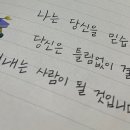 나는 당신을 믿습
당신은 틀림없이 결
내는 사람이 될 것입니다